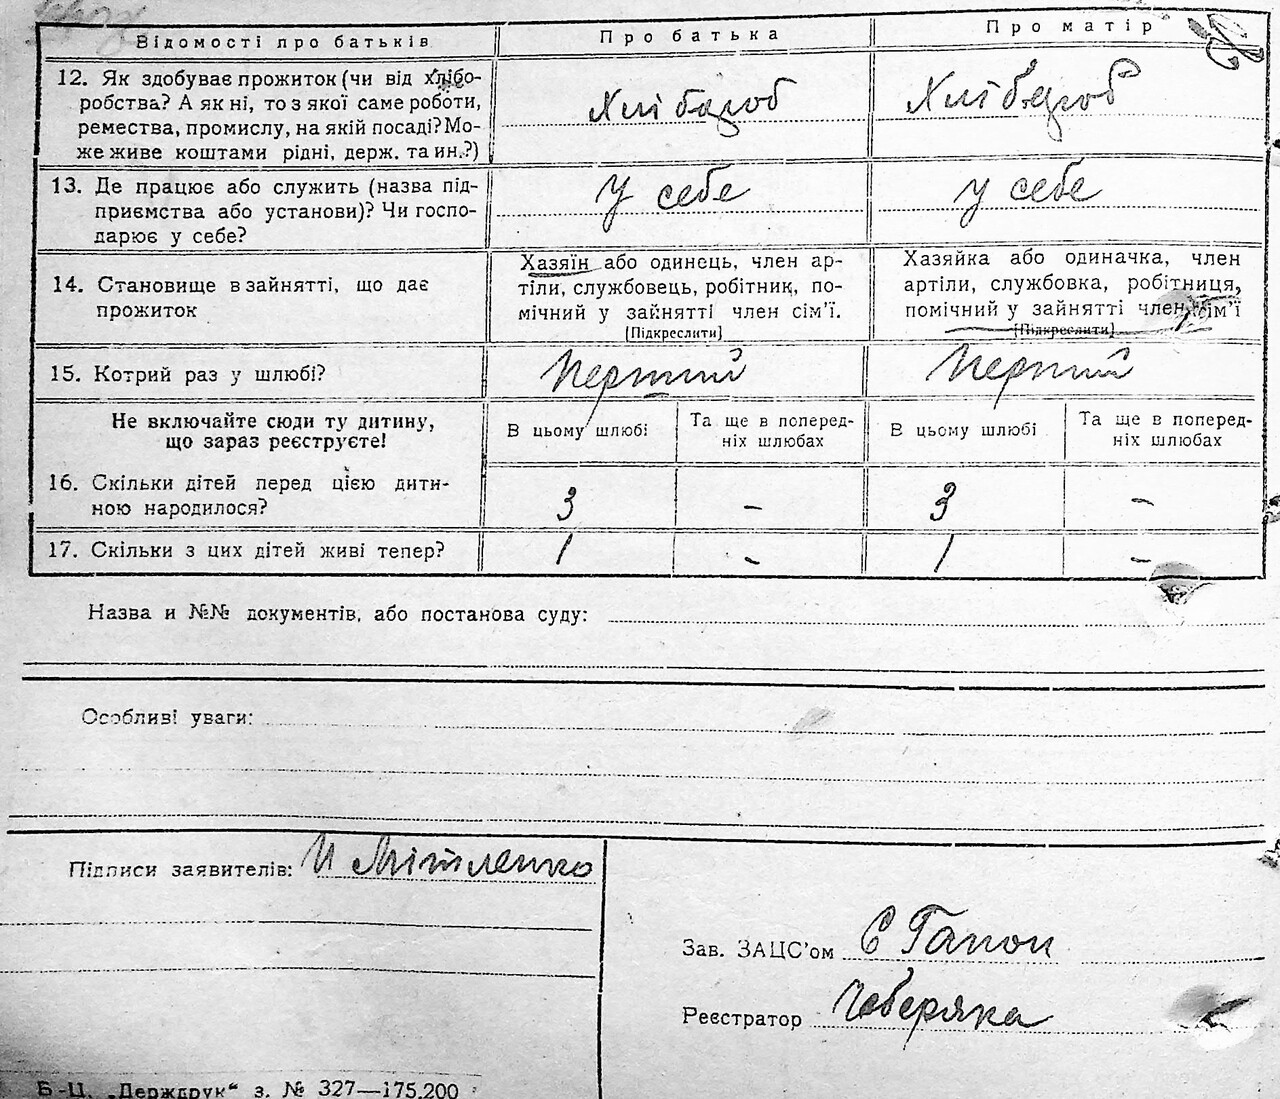 Відомості про батьків
Про батька
Про матір
12. Як здобуває прожиток (чи від хлібо-
робства? А як ні, то з якої саме роботи,
ремества, промислу, на якій посаді? Мо-
же живе коштами рідні, держ. та ин.?)
Хлібороб
Хлібороб
13. Де працює або служить (назва під-
приємства або установи)? Чи госпо-
дарює у себе?
У себе
У себе
14. Становище в зайнятті, що дає
прожиток
Хазяїн або одинець, член ар-
тіли, службовець, робітник, по-
мічний у зайнятті член сім'ї.
[Підкреслити]
Хазяйка або одиначка, член
артіли, службовка, робітниця,
помічний у зайнятті член сім'ї
[Підкреслити]
15. Котрий раз у шлюбі?
Перший
Перший
Не включайте сюди ту дитину,
що зараз реєструєте!
В цьому шлюбі
Та ще в поперед-
ніх шлюбах
В цьому шлюбі
Та ще в поперед-
ніх шлюбах
16. Скільки дітей перед цією дити-
ною народилося?
3
-
3
-
17. Скільки з цих дітей живі тепер?
1
-
1
-
Назва и №№ документів, або постанова суду:
Особливі уваги:
Підписи заявителів: И Мітленко
Зав. ЗАЦС'ом Є Гапон
Реєстратор Чеберяка
Б-Ц. „Держдрук“ з. № 327—175.200